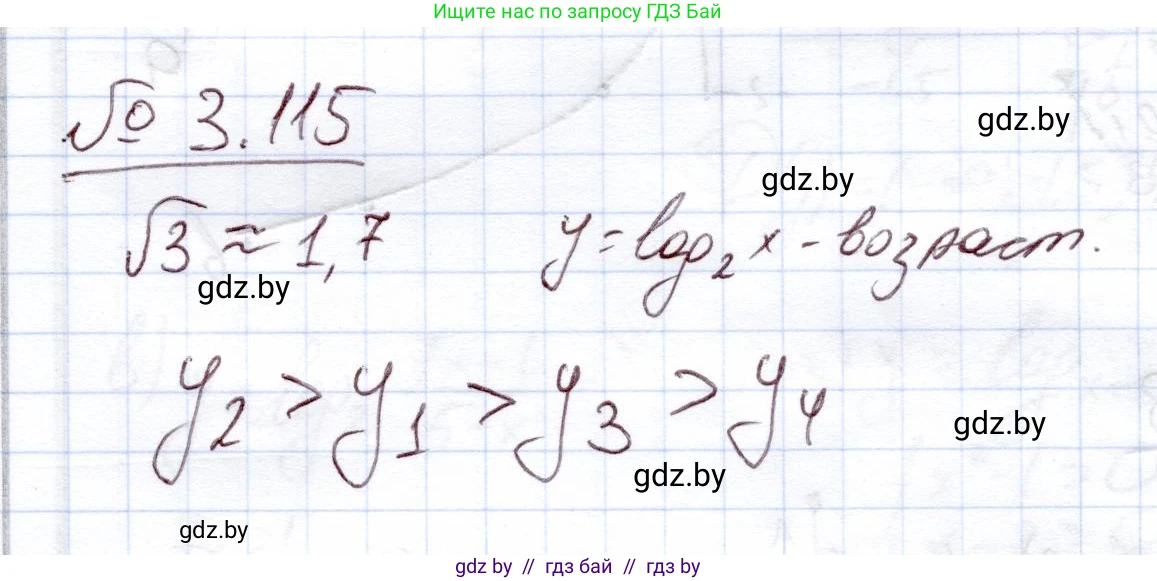 Ищите нас по запросу ГДЗ Бай
№ 3.115
gdz.by
gdz.by
√3 ≈ 1,7 y = log₂ x - возраст.
gdz.by
y₂ > y₁ > y₃ > y₄
gdz.by
gdz.by
gdz.by
gdz.by // гдз бай // гдз by